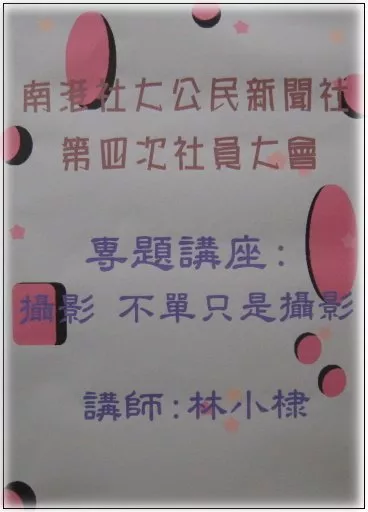 南港社大公民新聞社
第四次社員大會
專題講座:
攝影 不單只是攝影
講師:林小棣